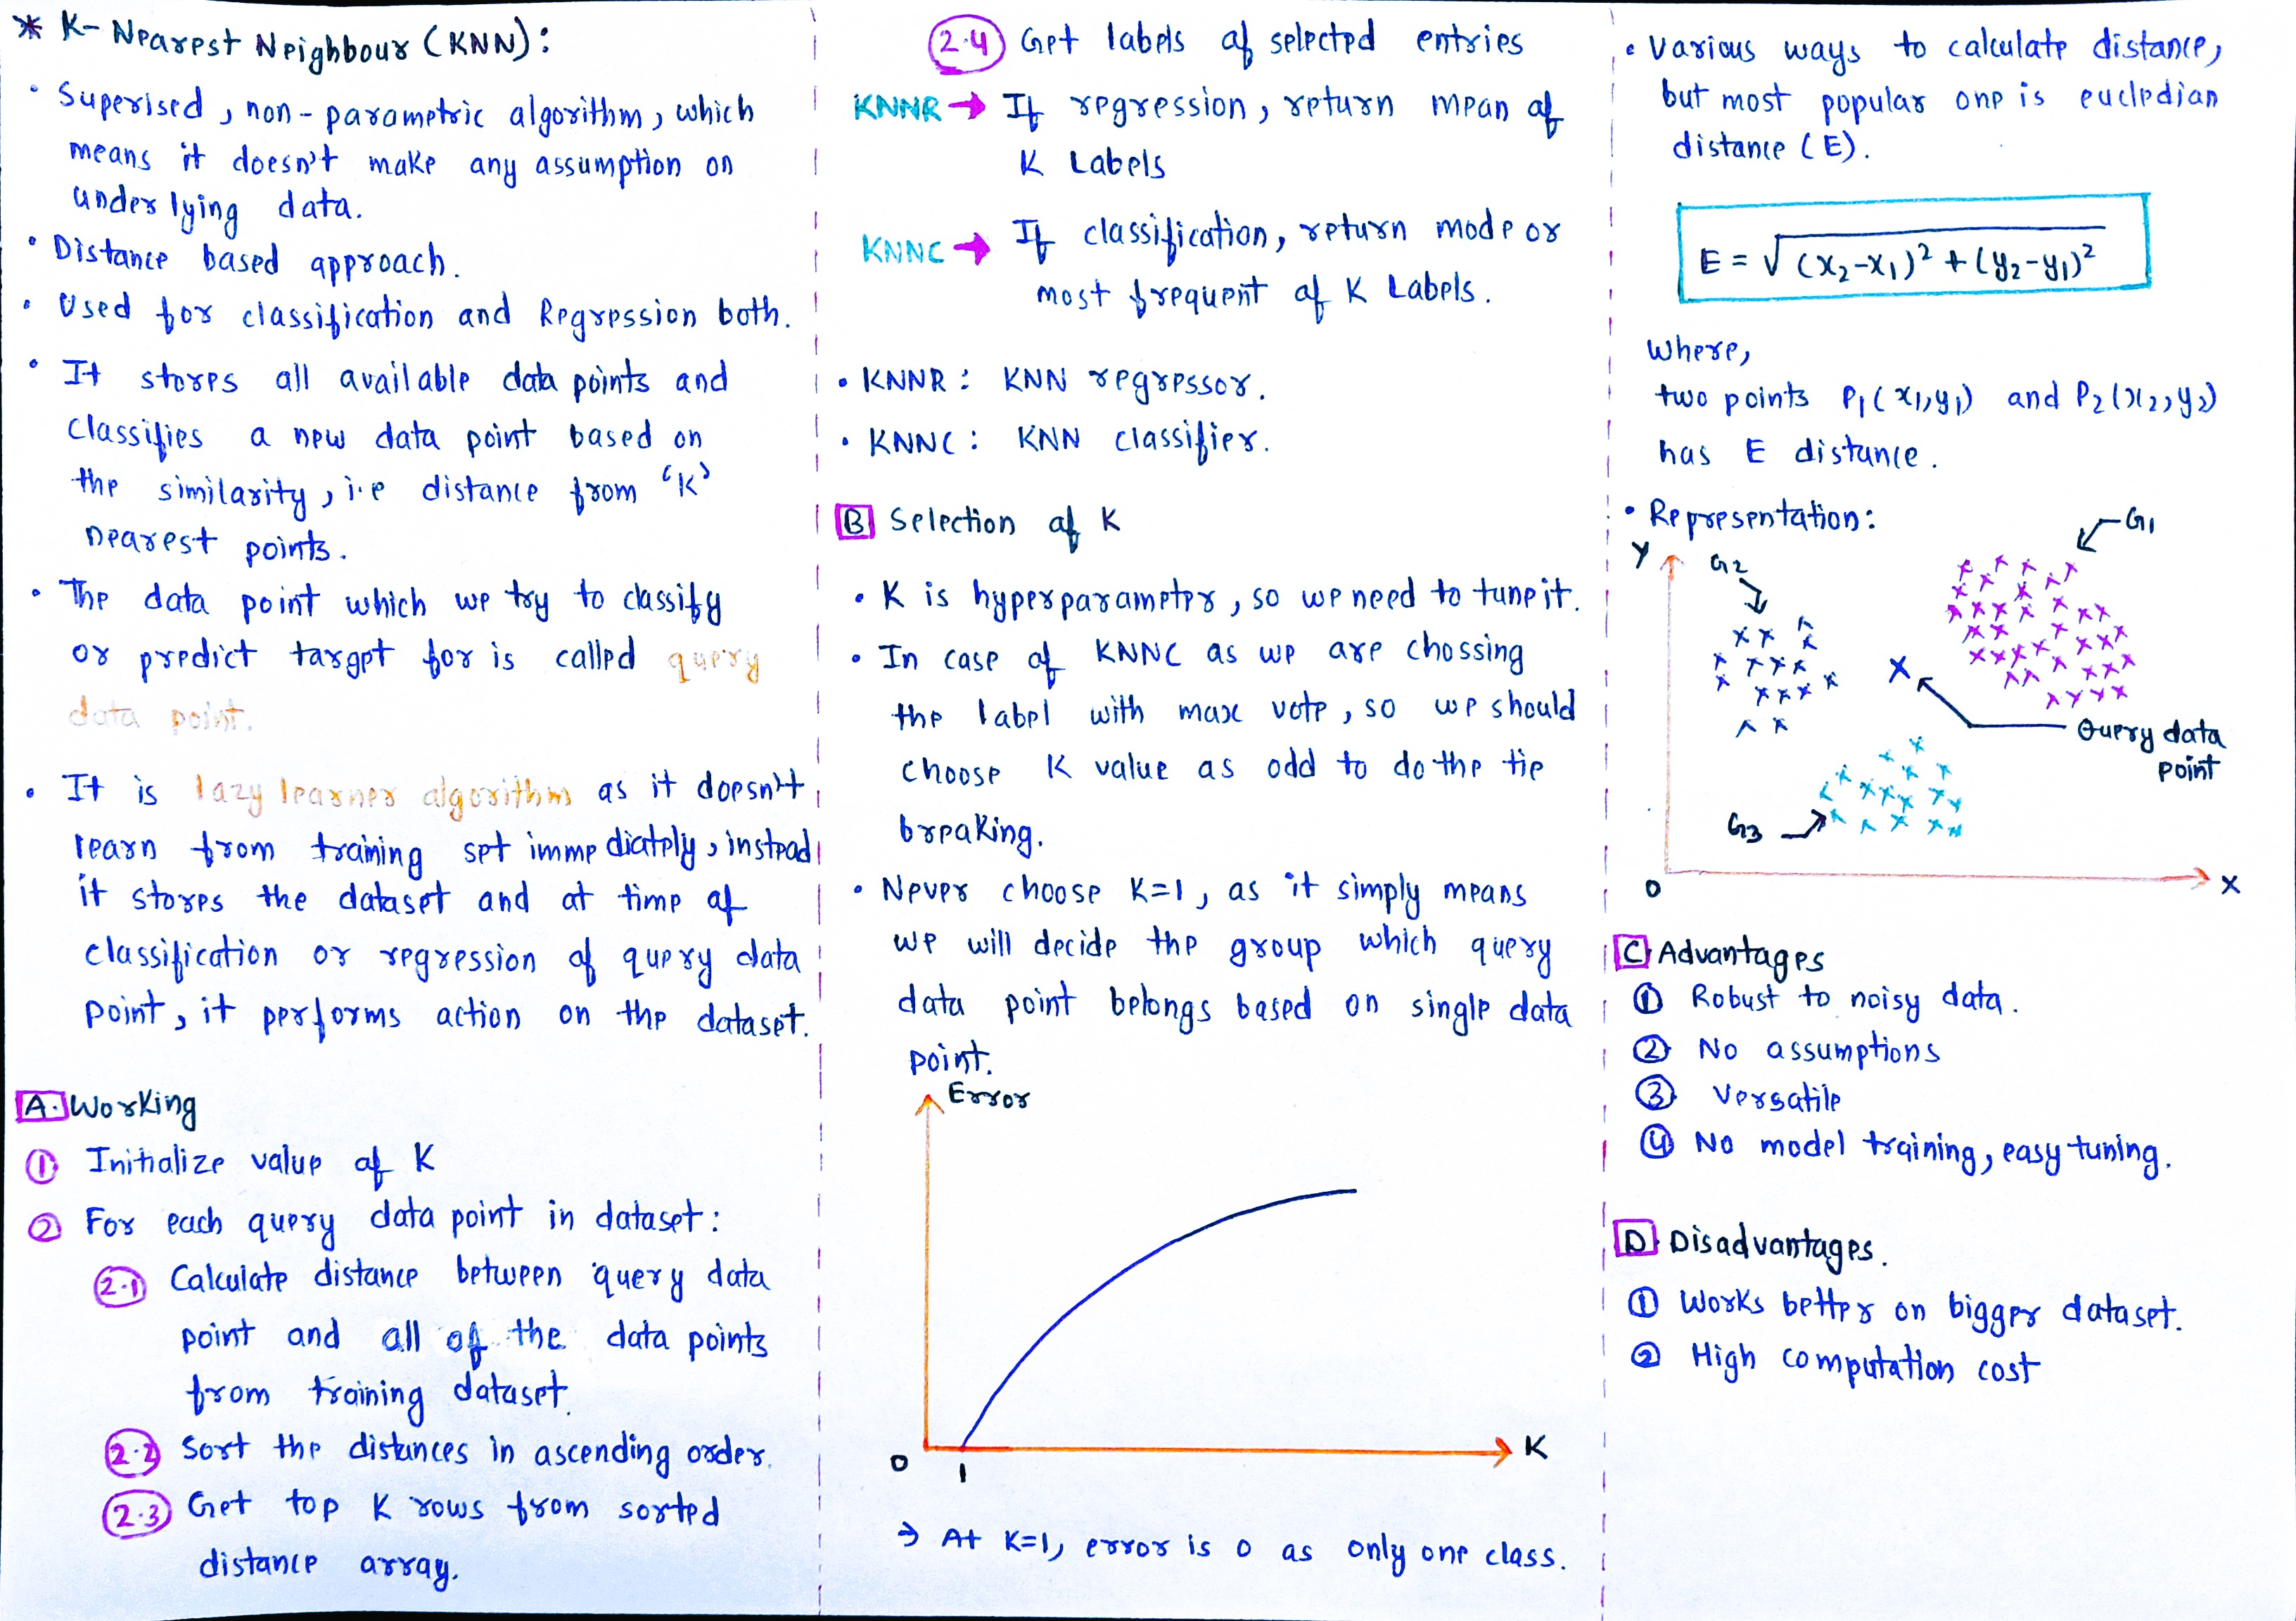 * K-Nearest Neighbour (KNN):
• Superised, non-parametric algorithm, which
means it doesn't make any assumption on
underlying data.
• Distance based approach.
• Used for classification and Regression both.
• It stores all available data points and
classifies a new data point based on
the similarity, i.e distance from 'K'
nearest points.
• The data point which we try to classify
or predict target for is called query
data point.
• It is lazy learner algorithm as it doesn't
learn from training set immediately, instead
it stores the dataset and at time of
classification or regression of query data
point, it performs action on the dataset.
A. Working
① Initialize value of K
② For each query data point in dataset:
2.1 Calculate distance between query data
point and all of the data points
from training dataset.
2.2 Sort the distances in ascending order.
2.3 Get top K rows from sorted
distance array.
2.4 Get labels of selected entries
KNNR → If regression, return mean of
K Labels
KNNC → If classification, return mode or
most frequent of K Labels.
• KNNR: KNN regressor.
• KNNC: KNN classifier.
B Selection of K
• K is hyperparameter, so we need to tune it.
• In case of KNNC as we are chossing
the label with max vote, so we should
choose K value as odd to do the tie
breaking.
• Never choose K=1, as it simply means
we will decide the group which query
data point belongs based on single data
point.
Error
K
0
1
→ At K=1, error is 0 as only one class.
• Various ways to calculate distance,
but most popular one is eucledian
distance (E).
E = √(x₂-x₁)² + (y₂-y₁)²
where,
two points P₁(x₁,y₁) and P₂(x₂,y₂)
has E distance.
• Representation:
Y
G2
G1
X
Query data
point
G3
0
X
C Advantages
① Robust to noisy data.
② No assumptions
③ Versatile
④ No model training, easy tuning.
D Disadvantages.
① Works better on bigger dataset.
② High computation cost